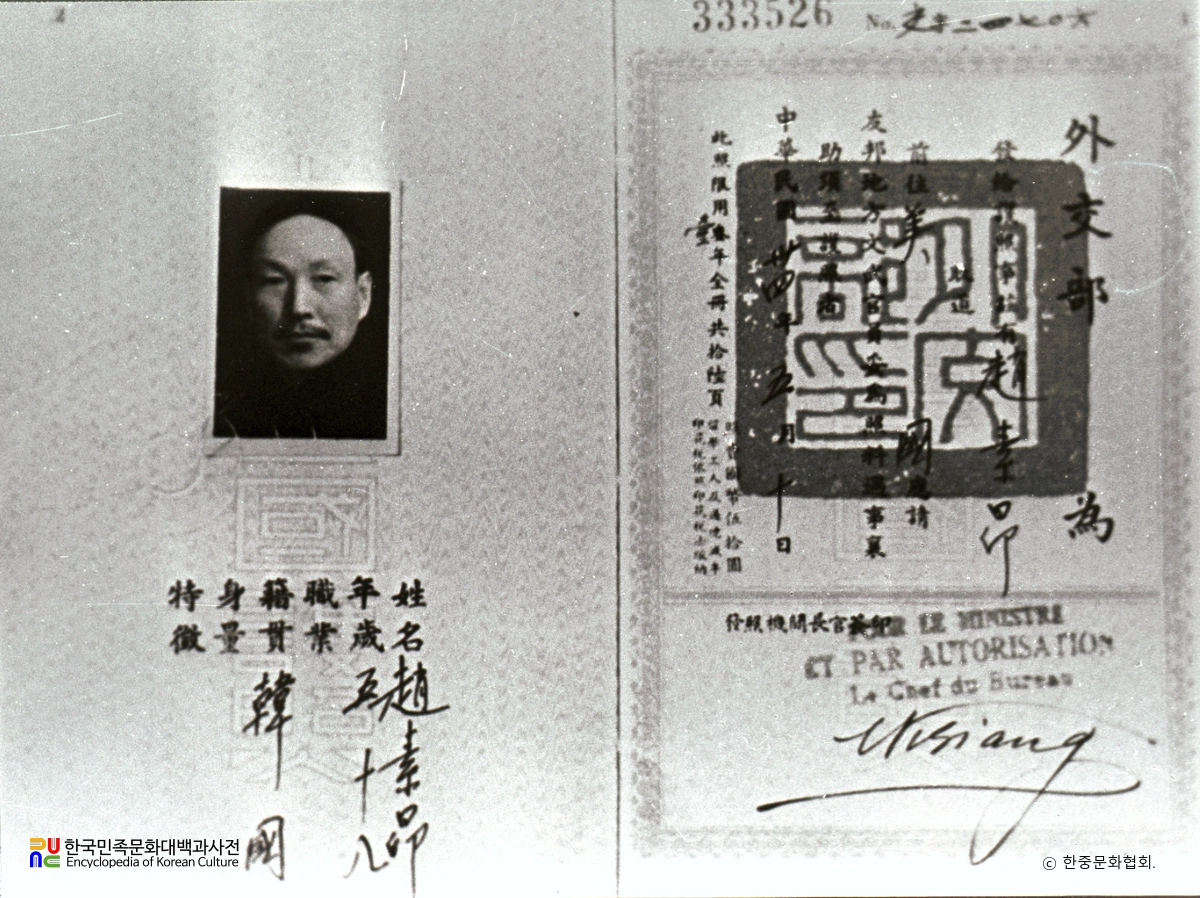 2
333526
No.
外交部 為
發給護照事茲有趙素昂
取道
前往美 國應請
友邦地方文武官員妥為照料遇事襄
助須至護照者
中華民國卅四年五月十日
此照限用壹年全冊共拾陸頁
費國幣伍拾圓
發照機關長官簽印
POUR LE MINISTRE
ET PAR AUTORISATION
Le Chef du Bureau
姓名 趙素昂
年歲 五十八
職業
籍貫 韓國
身量
特徵
한국민족문화대백과사전
Encyclopedia of Korean Culture
ⓒ 한중문화협회.